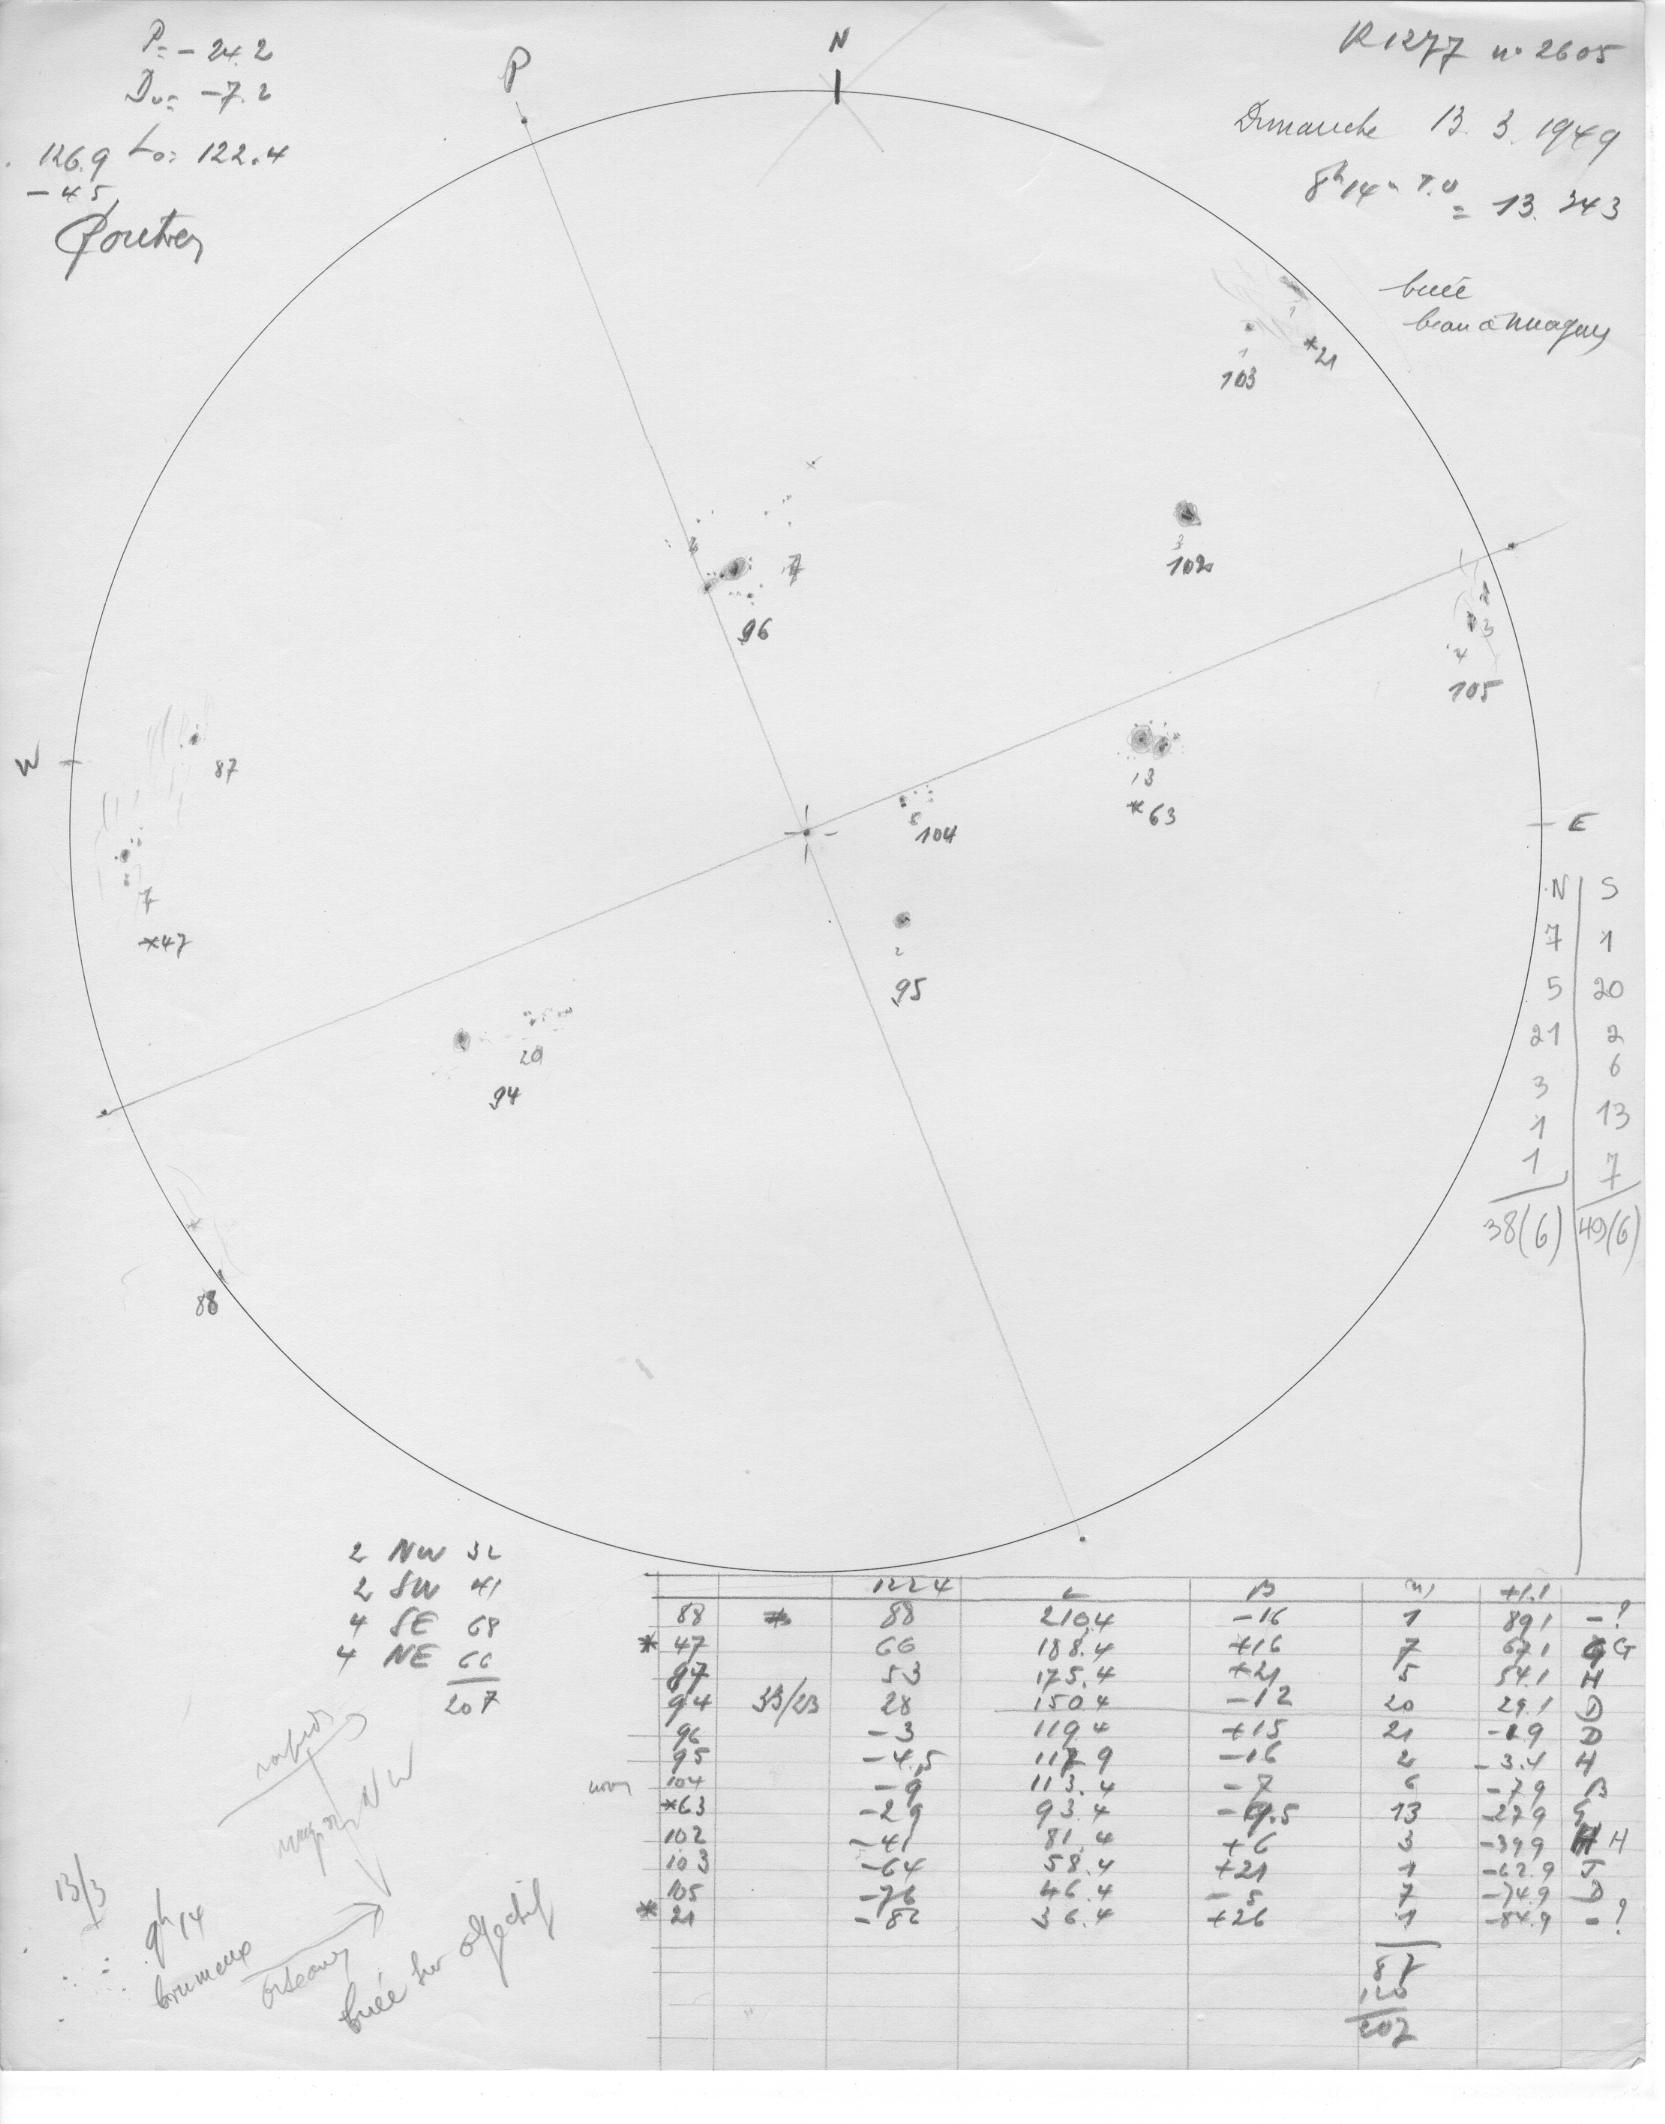 P = - 24.2
Do = - 7.2
126.9 Lo = 122.4
- 4.5
P
N
R 1277 n° 2605
Dimanche 13. 3. 1949
8h14m T.U
= 13. 343
buée
beau à nuages
1
*21
1
103
3
102
2
3
2
105
7
96
W
87
13
*63
8
104
E
7
*47
2
95
20
94
88
N S
7 1
5 20
21 2
3 6
1 13
1 7
38(6) 49(6)
2 NW 32
2 SW 41
4 SE 68
4 NE 66
207
122.4 L B +1.1
88 88 210.4 -16 1 89.1 - ?
* 47 66 188.4 +16 7 67.1 G
87 53 175.4 +21 5 54.1 H
94 33/23 28 150.4 -12 20 29.1 D
96 -3 119.4 +15 21 -1.9 D
95 -4.5 117.9 -16 2 -3.4 H
104 -9 113.4 -7 6 -7.9 B
*63 -29 93.4 -9.5 13 -27.9 G
102 -41 81.4 +6 3 -39.9 H H
103 -64 58.4 +21 1 -62.9 J
105 -76 46.4 -5 7 -74.9 D
* 21 -86 36.4 +26 1 -84.9 - ?
87
120
207
NW
13/3
9h14
brumeux
buée sur objectif